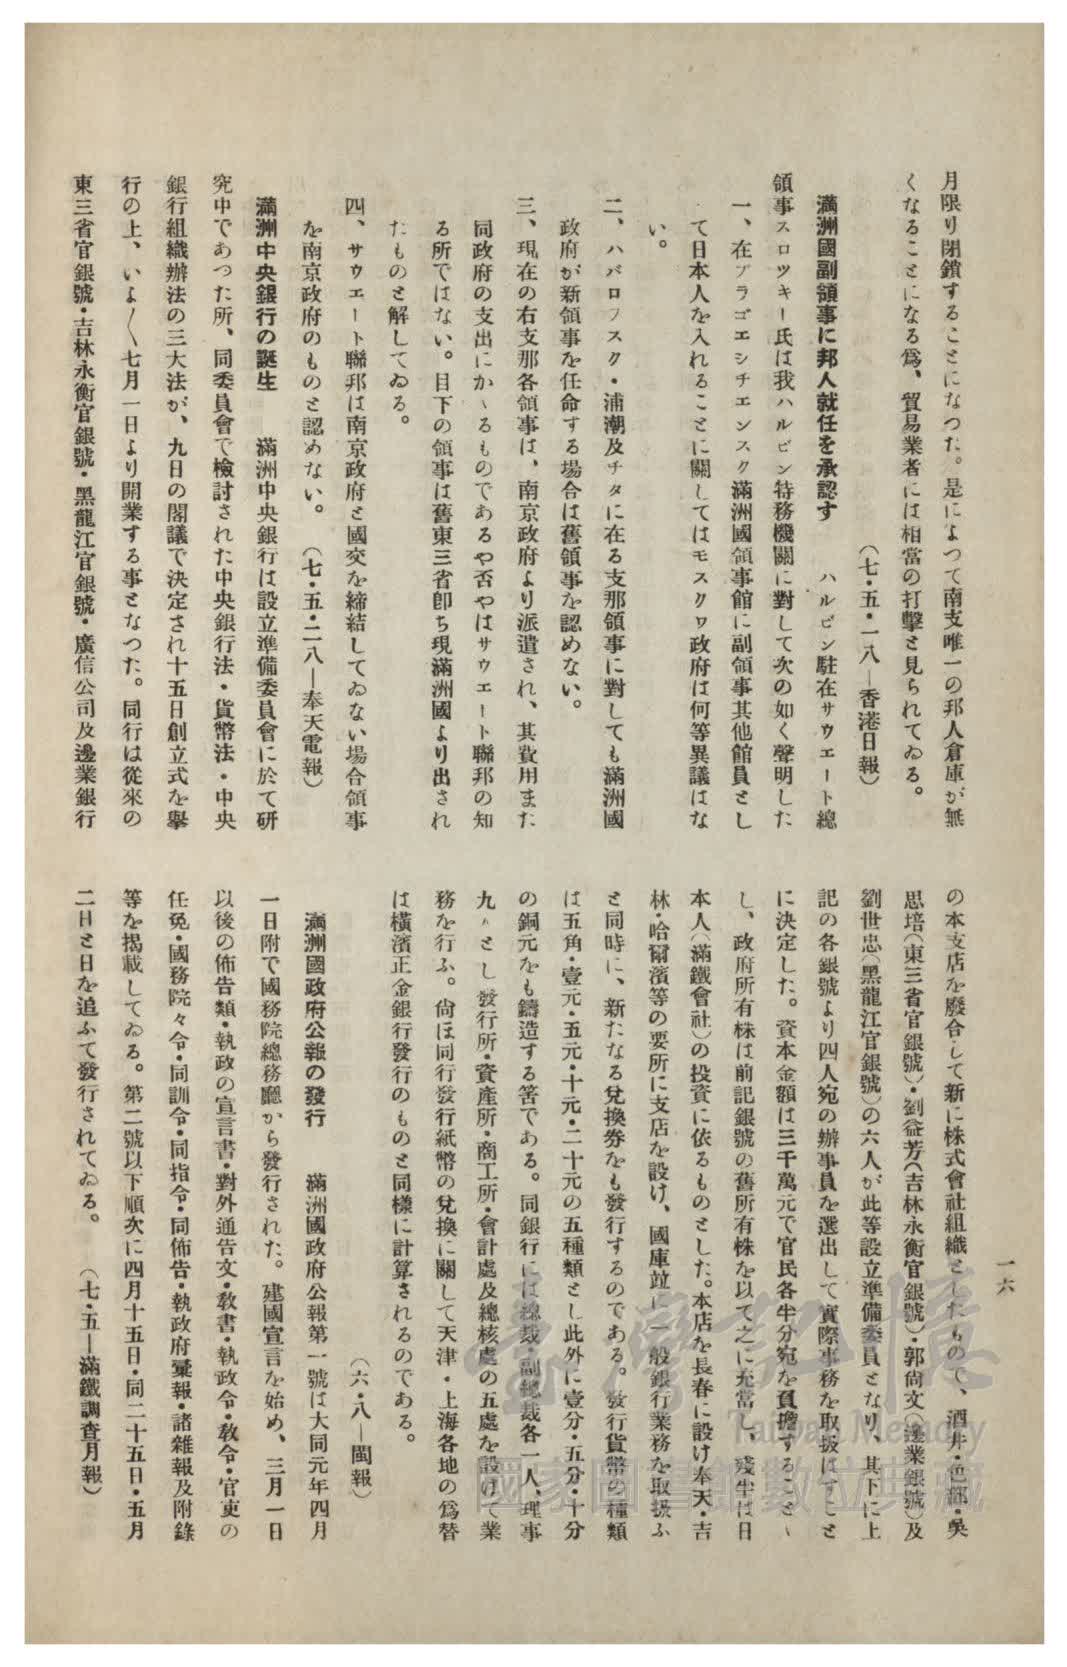 一六
月限り閉鎖することになつた。是によつて南支唯一の邦人倉庫が無
くなることになる爲、貿易業者には相當の打擊と見られてゐる。
（七・五・一八―香港日報）
滿洲國副領事に邦人就任を承認す　ハルビン駐在サウエート總
領事スロツキー氏は我ハルビン特務機關に對して次の如く聲明した
一、在ブラゴエシチエンスク滿洲國領事館に副領事其他館員とし
て日本人を入れることに關してはモスクワ政府は何等異議はな
い。
二、ハバロフスク・浦潮及チタに在る支那領事に對しても滿洲國
政府が新領事を任命する場合は舊領事を認めない。
三、現在の右支那各領事は、南京政府より派遣され、其費用また
同政府の支出にかゝるものであるや否やはサウエート聯邦の知
る所ではない。目下の領事は舊東三省卽ち現滿洲國より出され
たものと解してゐる。
四、サウエート聯邦は南京政府と國交を締結してゐない場合領事
を南京政府のものと認めない。　（七・五・二八―奉天電報）
滿洲中央銀行の誕生　滿洲中央銀行は設立準備委員會に於て研
究中であつた所、同委員會で檢討された中央銀行法・貨幣法・中央
銀行組織辦法の三大法が、九日の閣議で決定され十五日創立式を擧
行の上、いよ〱七月一日より開業する事となつた。同行は從來の
東三省官銀號・吉林永衡官銀號・黑龍江官銀號・廣信公司及邊業銀行
の本支店を廢合して新に株式會社組織としたもので、酒井・色部・吳
思培（東三省官銀號）・劉益芳（吉林永衡官銀號）・郭尙文（邊業銀號）及
劉世忠（黑龍江官銀號）の六人が此等設立準備委員となり、其下に上
記の各銀號より四人宛の辦事員を選出して實際事務を取扱はすこと
に決定した。資本金額は三千萬元で官民各半分宛を負擔することゝ
し、政府所有株は前記銀號の舊所有株を以て之に充當し、殘半は日
本人（滿鐵會社）の投資に依るものとした。本店を長春に設け奉天・吉
林・哈爾濱等の要所に支店を設け、國庫竝に一般銀行業務を取扱ふ
と同時に、新たなる兌換券をも發行するのである。發行貨幣の種類
は五角・壹元・五元・十元・二十元の五種類とし此外に壹分・五分・十分
の銅元をも鑄造する筈である。同銀行には總裁・副總裁各一人、理事
九人とし發行所・資產所・商工所・會計處及總核處の五處を設けて業
務を行ふ。尙ほ同行發行紙幣の兌換に關して天津・上海各地の爲替
は橫濱正金銀行發行のものと同樣に計算されるのである。
（六・八―閩報）
滿洲國政府公報の發行　滿洲國政府公報第一號は大同元年四月
一日附で國務院總務廳から發行された。建國宣言を始め、三月一日
以後の佈告類・執政の宣言書・對外通告文・敎書・執政令・敎令・官吏の
任免・國務院々令・同訓令・同指令・同佈告・執政府彙報・諸雜報及附錄
等を揭載してゐる。第二號以下順次に四月十五日・同二十五日・五月
二日と日を追ふて發行されてゐる。　（七・五―滿鐵調查月報）
臺灣記憶
Taiwan Memory
國家圖書館數位典藏